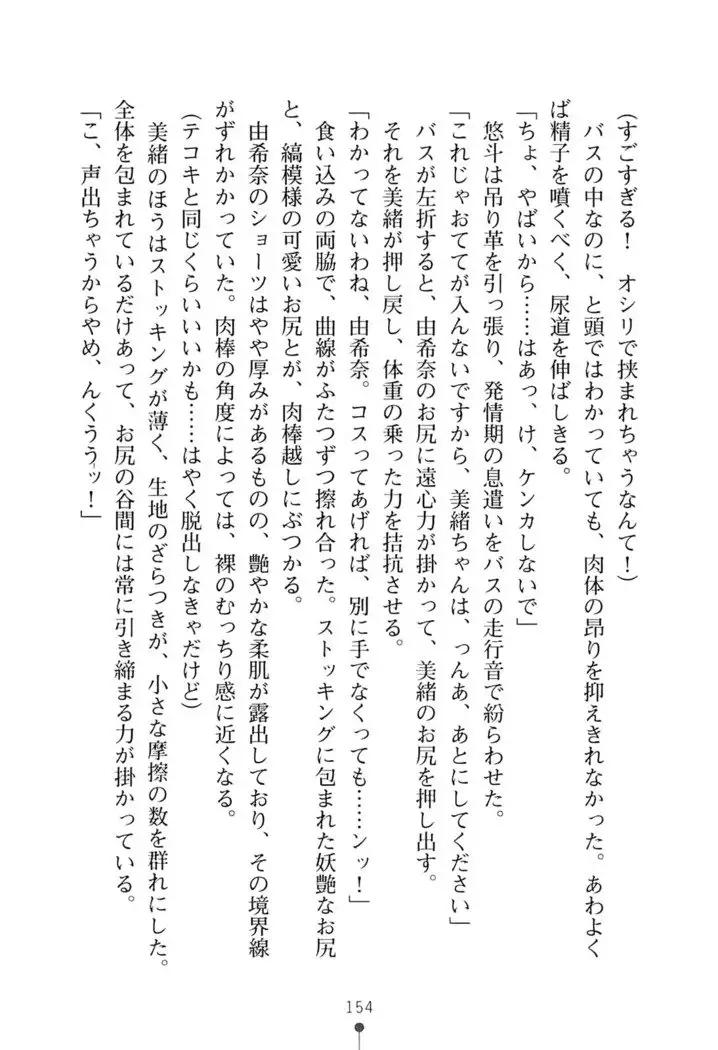 (すごすぎる! オシリで挟まれちゃうなんて!)
バスの中なのに、と頭ではわかっていても、肉体の昂りを抑えきれなかった。あわよく
ば精子を噴くべく、尿道を伸ばしきる。
「ちょ、やばいから……はあっ、け、ケンカしないで」
悠斗は吊り革を引っ張り、発情期の息遣いをバスの走行音で紛らわせた。
「これじゃおててが入んないですから、美緒ちゃんは、っんあ、あとにしてください」
バスが左折すると、由希奈のお尻に遠心力が掛かって、美緒のお尻を押し出す。
それを美緒が押し戻し、体重の乗った力を拮抗させる。
「わかってないわね、由希奈。コスってあげれば、別に手でなくっても……ンッ!」
食い込みの両脇で、曲線がふたつずつ擦れ合った。ストッキングに包まれた妖艶なお尻
と、縞模様の可愛いお尻とが、肉棒越しにぶつかる。
由希奈のショーツはやや厚みがあるものの、艶やかな柔肌が露出しており、その境界線
がずれかかっていた。肉棒の角度によっては、裸のむっちり感に近くなる。
(テコキと同じくらいいいかも……はやく脱出しなきゃだけど)
美緒のほうはストッキングが薄く、生地のざらつきが、小さな摩擦の数を群れにした。
全体を包まれているだけあって、お尻の谷間には常に引き締まる力が掛かっている。
「こ、声出ちゃうからやめ、んくううッ!」
154